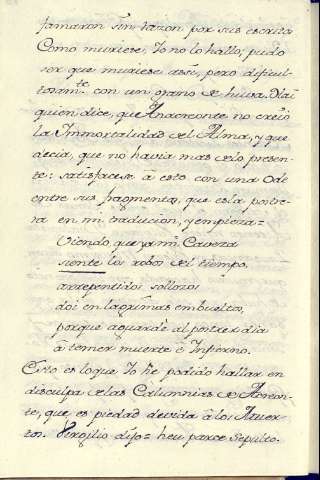 famaron sin razon por sus escritos
Como muriese, Yo no lo hallo; pudo
ser que muriese assi, pero dificul-
tosam.te con un grano de huba. Hai
quien dice, que Anacreonte no creiò
la Immortalidad del Alma, y que
decia, que no havia mas de lo presen-
te: satisfacese à esto con una Ode
entre sus fragmentos, que es la postre-
ra en mi traducion, y empieza=
Viendo que ya mi Caveza
siente los robos del tiempo,
arrepentidos sollozos
doi en lagrimas embueltos,
porque aguarde al postrer dia
à temer muerte è Infierno.
Esto es lo que Yo he podido hallar en
disculpa de las Calumnias de Acreon-
te, que es piedad devida à los Muer-
tos. Virgilio dijo= heu parce Sepulto.